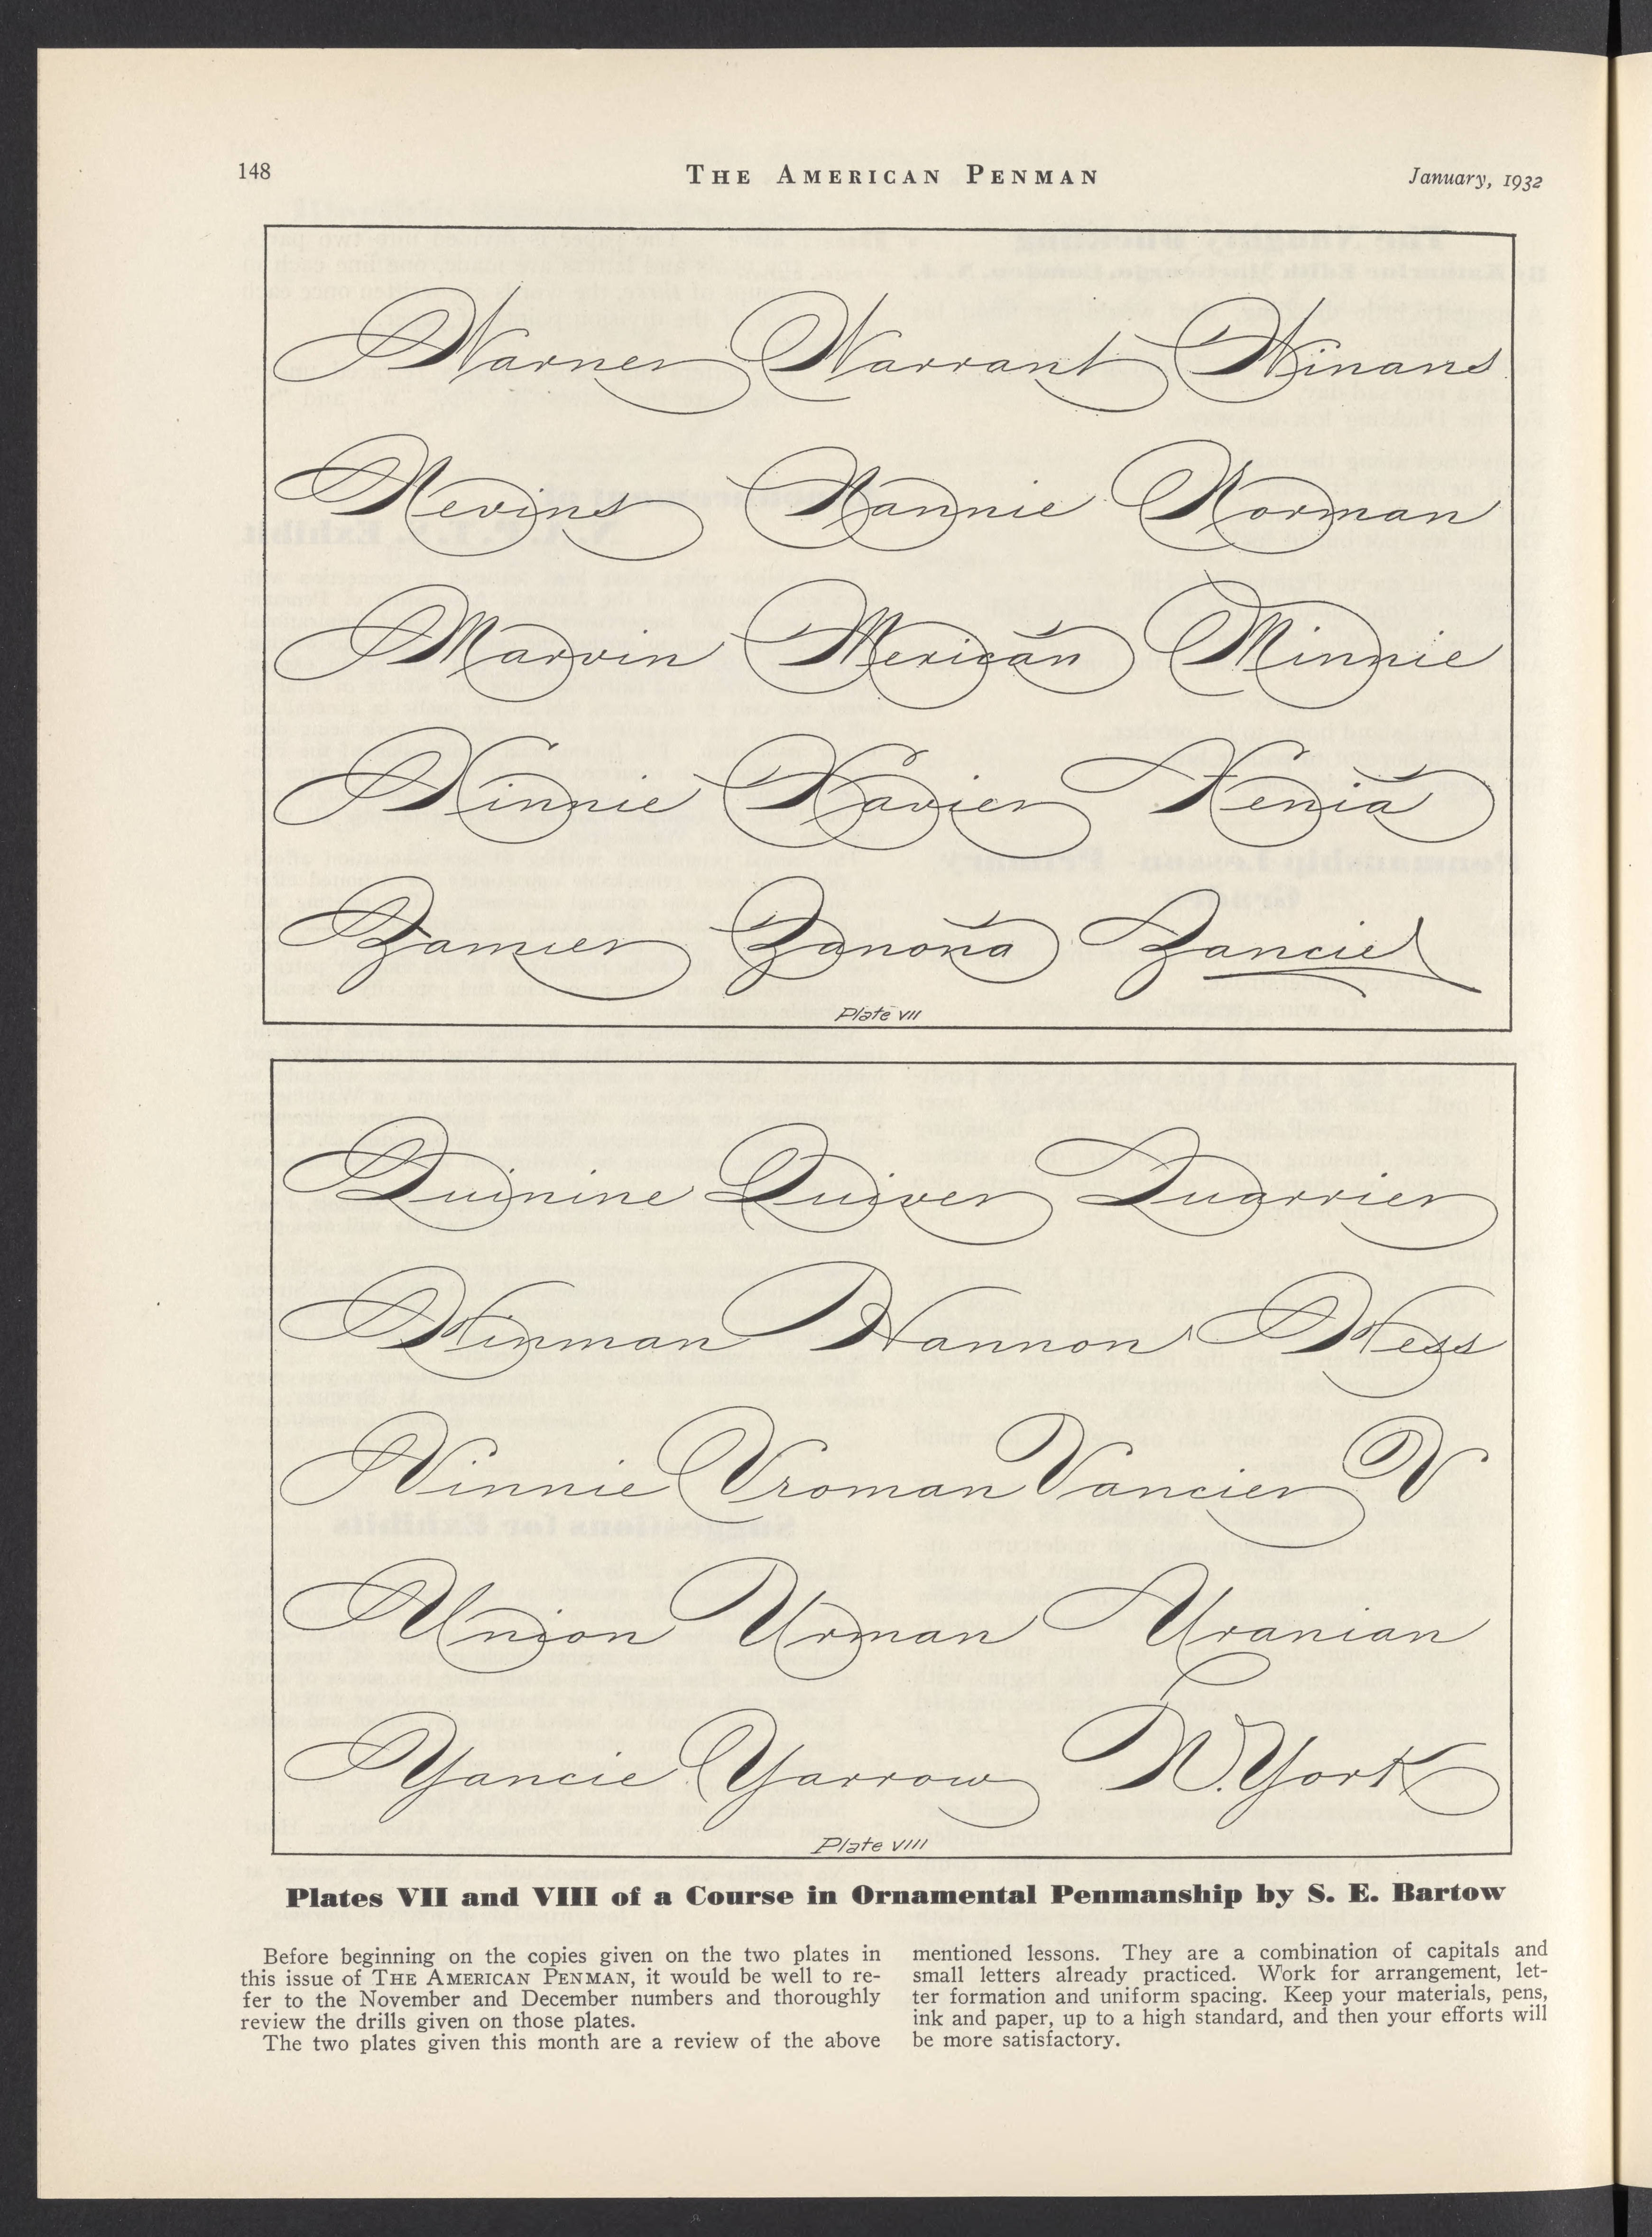 148
THE AMERICAN PENMAN
January, 1932
Warner Warrant Winans
Nevins Nannie Norman
Marvin Mexican Minnie
Xinnie Xavier Xenia
Zamier Zanona Zancie
Plate VII
Quinine Quiver Quarrier
Hinman Hannon Hess
Vinnie Vroman Vancier V
Union Urman Uranian
Yancie Yarrow N. York
Plate VIII
Plates VII and VIII of a Course in Ornamental Penmanship by S. E. Bartow
Before beginning on the copies given on the two plates in
this issue of THE AMERICAN PENMAN, it would be well to re-
fer to the November and December numbers and thoroughly
review the drills given on those plates.
The two plates given this month are a review of the above
mentioned lessons. They are a combination of capitals and
small letters already practiced. Work for arrangement, let-
ter formation and uniform spacing. Keep your materials, pens,
ink and paper, up to a high standard, and then your efforts will
be more satisfactory.